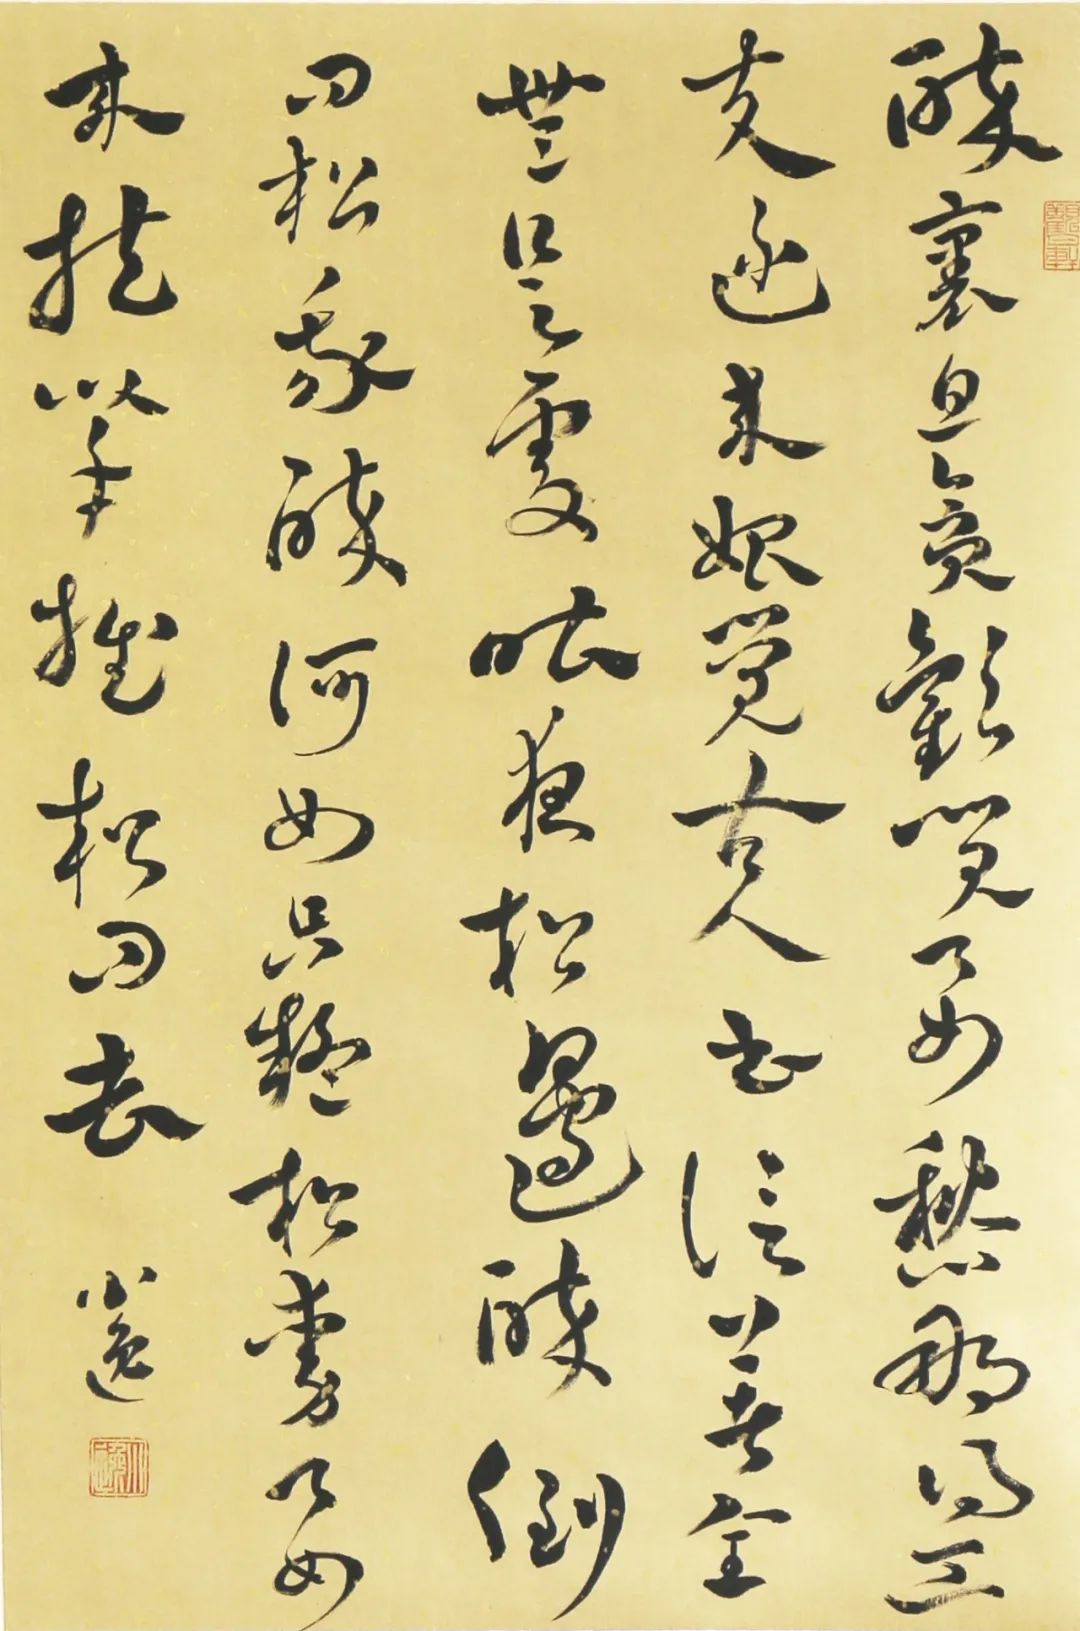 醉裏且貪歡笑要愁那得工
夫近来始覺古人書信著全
無是處昨夜松邊醉倒
問松我醉何如只疑松動要
来扶以手推松曰去 小逸